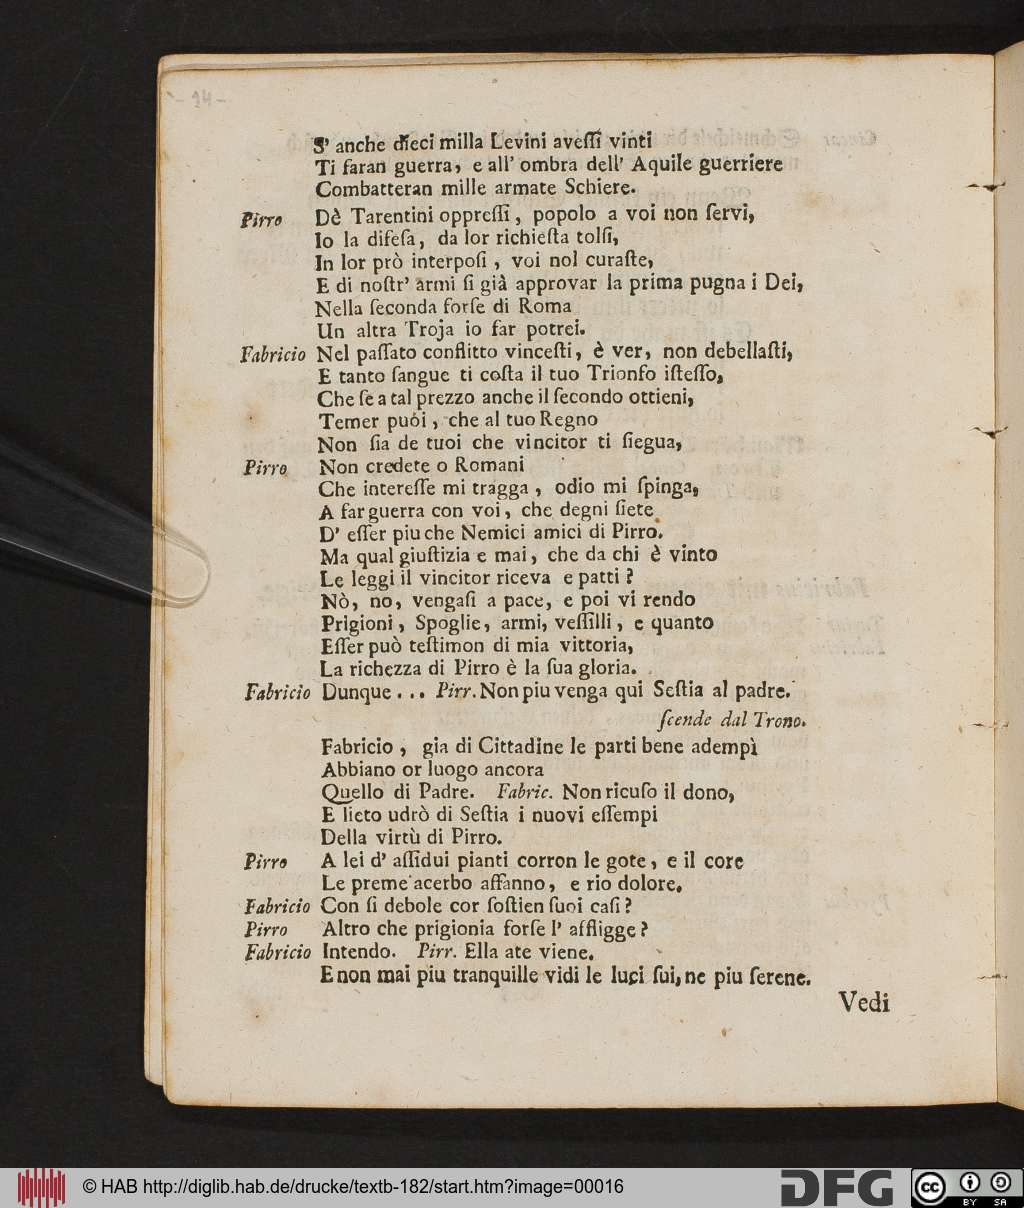 - 14 -
S' anche dieci milla Levini aveſſi vinti
Ti faran guerra, e all' ombra dell' Aquile guerriere
Combatteran mille armate Schiere.
Pirro Dè Tarentini oppreſſi, popolo a voi non ſervi,
Io la difeſa, da lor richieſta tolſi,
In lor prò interpoſi, voi nol curaſte,
E di noſtr' armi ſi già approvar la prima pugna i Dei,
Nella ſeconda forſe di Roma
Un altra Troja io far potrei.
Fabricio Nel paſſato conflitto vinceſti, è ver, non debellaſti,
E tanto ſangue ti coſta il tuo Trionfo iſteſſo,
Che ſe a tal prezzo anche il ſecondo ottieni,
Temer puói, che al tuo Regno
Non ſia de tuoi che vincitor ti ſiegua,
Pirro Non credete o Romani
Che intereſſe mi tragga, odio mi ſpinga,
A far guerra con voi, che degni ſiete
D' eſſer piu che Nemici amici di Pirro.
Ma qual giuſtizia e mai, che da chi è vinto
Le leggi il vincitor riceva e patti?
Nò, no, vengaſi a pace, e poi vi rendo
Prigioni, Spoglie, armi, veſſilli, e quanto
Eſſer può teſtimon di mia vittoria,
La richezza di Pirro è la ſua gloria.
Fabricio Dunque... Pirr. Non piu venga qui Seſtia al padre.
ſcende dal Trono.
Fabricio, gia di Cittadine le parti bene adempì
Abbiano or luogo ancora
Quello di Padre. Fabric. Non ricuſo il dono,
E lieto udrò di Seſtia i nuovi eſſempi
Della virtù di Pirro.
Pirro A lei d' aſſidui pianti corron le gote, e il core
Le preme acerbo affanno, e rio dolore.
Fabricio Con ſi debole cor ſoſtien ſuoi caſi?
Pirro Altro che prigionia forſe l' affligge?
Fabricio Intendo. Pirr. Ella ate viene.
E non mai piu tranquille vidi le luci ſui, ne piu ſerene.
Vedi
© HAB http://diglib.hab.de/drucke/textb-182/start.htm?image=00016
DFG
cc BY SA